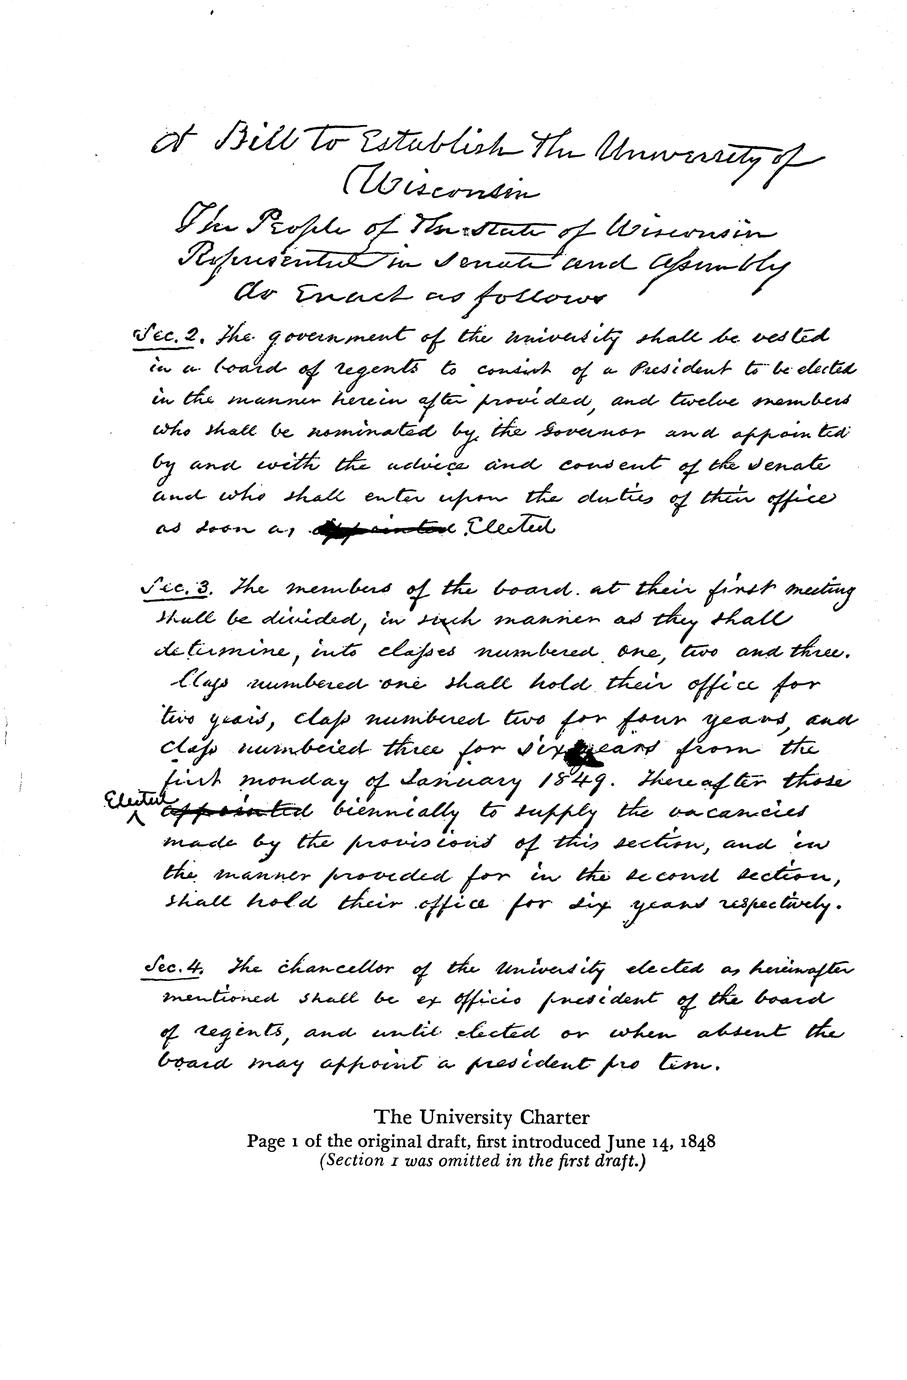 A Bill To Establish The University of
Wisconsin
The People of The state of Wisconsin
Represented in Senate and Assembly
do Enact as follows
Sec. 2. The government of the university shall be vested
in a board of regents to consist of a President to be elected
in the manner herein after provided, and twelve members
who shall be nominated by the Governor and appointed
by and with the advice and consent of the Senate
and who shall enter upon the duties of their office
as soon as appointed Elected
Sec. 3. The members of the board at their first meeting
shall be divided, in such manner as they shall
determine, into classes numbered one, two and three.
Class numbered one shall hold their office for
two years, class numbered two for four years, and
class numbered three for six years from the
first monday of January 1849. Thereafter those
Elected
appointed biennially to supply the vacancies
made by the provisions of this section, and in
the manner provided for in the second section,
shall hold their office for six years respectively.
Sec. 4. The chancellor of the University elected as hereinafter
mentioned shall be ex officio president of the board
of regents, and until elected or when absent the
board may appoint a president pro tem.
The University Charter
Page 1 of the original draft, first introduced June 14, 1848
(Section 1 was omitted in the first draft.)